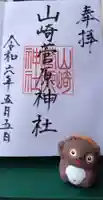 奉拝
山崎菅原神社
山崎
神社
令和六年五月五日